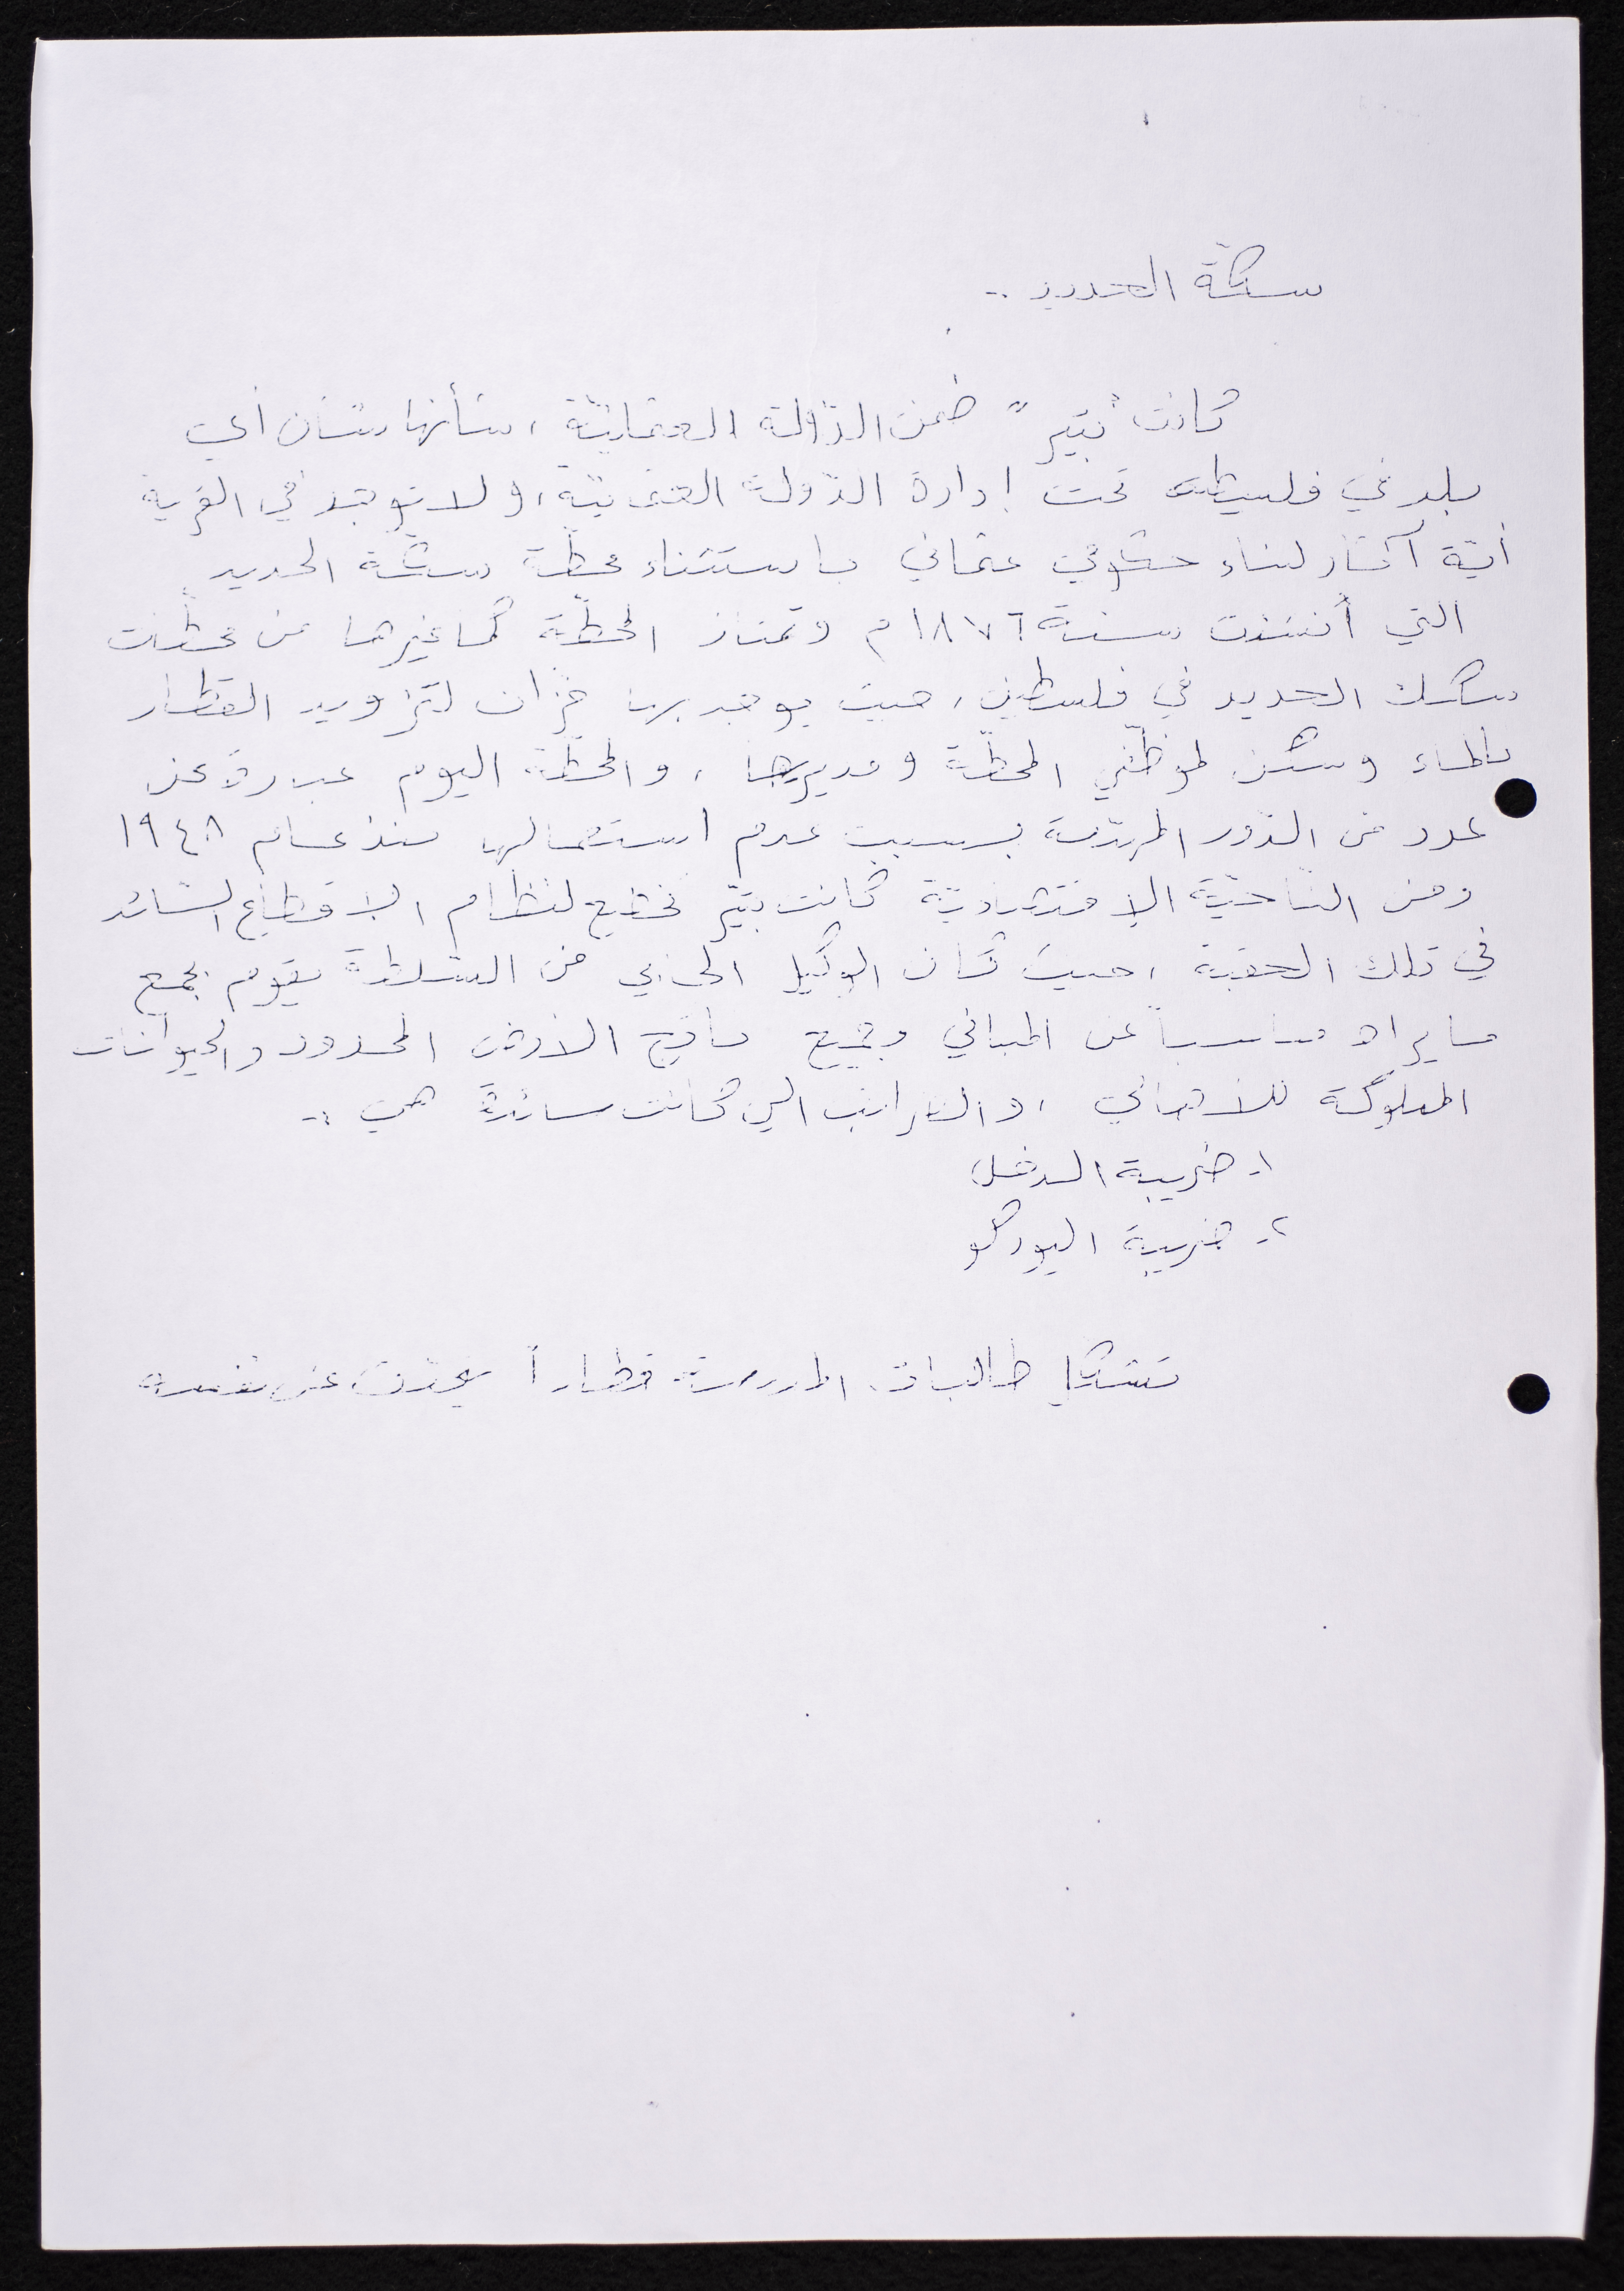 سكّة الحديد ..
كانت "بتير" ضمن الدّولة العثمانيّة ، شأنها شأن أي
بلد في فلسطين تحت إدارة الدّولة العثمانيّة، ولا توجد في القرية
أيّة آثار لبناء حكومي عثماني باستثناء محطّة سكّة الحديد
التي أنشئت سنة ١٨٧٦م وتمتاز المحطّة كما غيرها من محطّات
سكك الحديد في فلسطين، حيث يوجد بها خزّان لتزويد القطار
بالماء وسكن لموظّفي المحطّة ومديرها ، والمحطّة اليوم عبارة عن
عدد من الدّور المهدّمة بسبب عدم استعمالها منذ عام ١٩٤٨
ومن النّاحيّة الاقتصاديّة كانت بتير تخضع لنظام الاقطاع السّائد
في تلك الحقبة ، حيث كان الوكيل الجابي من السّلطة يقوم بجمع
ما يراه مناسباً عن المباني وجميع ناتج الأرض المحدود والحيوانات
المملوكة للأهالي ، والضرائب التي كانت سائدة هي :-
١- ضريبة الدخل
٢- ضريبة اليوركو
تشكّل طالبات المدرسة قطاراً يتحدّث عن نفسه